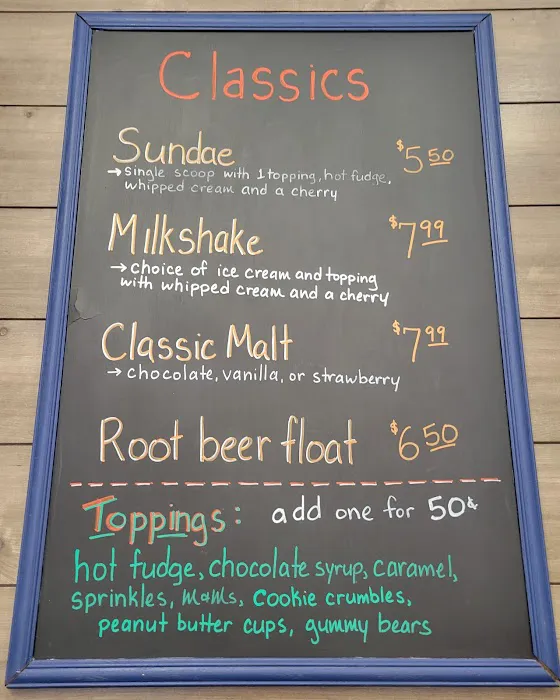 Classics
Sundae $5.50
→ Single scoop with 1 topping, hot fudge,
whipped cream and a cherry
Milkshake $7.99
→ choice of ice cream and topping
with whipped cream and a cherry
Classic Malt $7.99
→ chocolate, vanilla, or strawberry
Root beer float $6.50
Toppings: add one for 50¢
hot fudge, chocolate syrup, caramel,
sprinkles, M&Ms, Cookie crumbles,
peanut butter cups, gummy bears